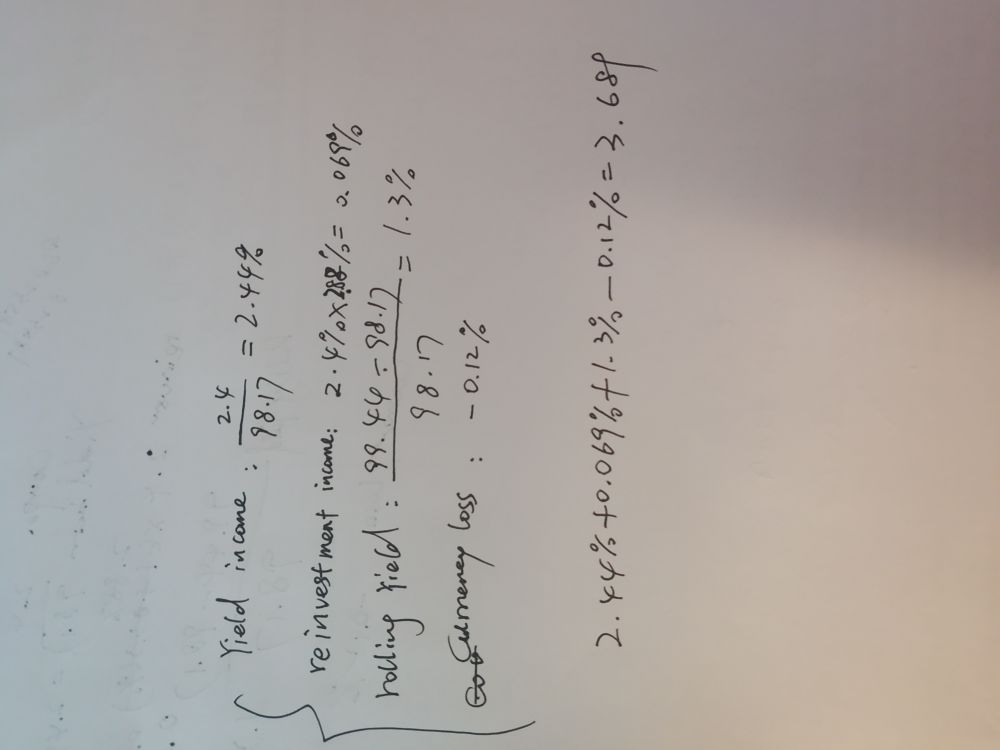 Yield income : 2.4 / 98.17 = 2.44%
reinvestment income: 2.4% × 2.88% = 0.069%
rolling Yield : 99.44 - 98.17 / 98.17 = 1.3%
Currency loss : - 0.12%
2.44% + 0.069% + 1.3% - 0.12% = 3.689